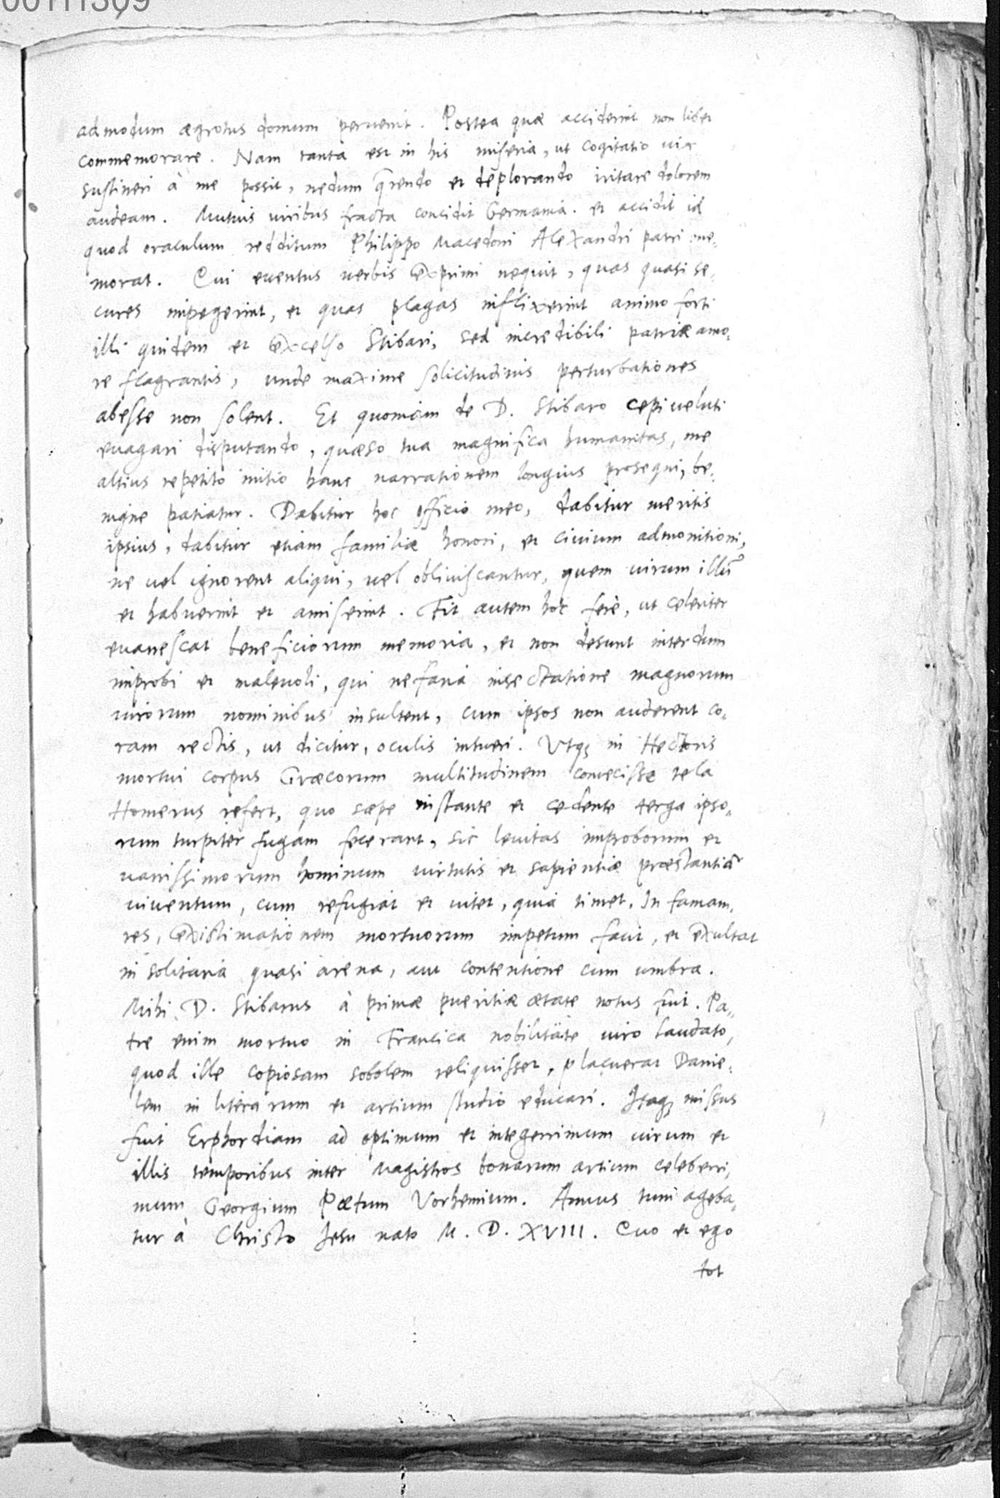 00111309
admodum ægrotus domum peruenit. Postea quæ acciderint non libet
commemorare. Nam tanta est in his miseria, ut cogitatio vix
sustineri à me possit, nedum querendo et deplorando iritare dolorem
audeam. Mutuis viribus fracta concidit Germania. et accidit id
quod oraculum redditum Philippo Macedoni Alexandri patri me-
morat. Cui euentus verbis exprimi nequit, quas quasi se-
cures impegerint, et quas plagas inflixerint animo forti
illi quidem et excelso Stibari, sed incredibili patriæ amo-
re flagrantis, unde maxime solicitudinis perturbationes
abesse non solent. Et quoniam de D. Stibaro cepi veluti
euagari disputando, quæso tua magnifica humanitas, me
altius repetito initio hanc narrationem longius prosequi, be-
nigne patiatur. Dabitur hoc officio meo, dabitur meritis
ipsius, dabitur etiam familiæ honori, et ciuium admonitioni,
ne vel ignorent aliqui, vel obliuiscantur, quem virum illū
et habuerint et amiserint. Fit autem hoc fere, ut celeriter
euanescat beneficiorum memoria, et non desunt interdum
improbi et maleuoli, qui nefaria insectatione magnorum
virorum nominibus insultent, cum ipsos non auderent co-
ram rectis, ut dicitur, oculis intueri. Utq; in Hectoris
mortui corpus Græcorum multitudinem coniecisse tela
Homerus refert, quo sæpe instante et cedente terga ipso-
rum turpiter fugam fecerant, sic leuitas improborum et
vanissimorum hominum virtutis et sapientiæ præstantiā
viuentum, cum refugiat et vitet, quia timet, In famam,
res, existimationem mortuorum impetum facit, et exultat
in solitaria quasi arena, aut contentione cum umbra.
Mihi D. Stibarus à primæ pueritiæ ætate notus fuit. Pa-
tre enim mortuo in Francica nobilitate viro laudato,
quod ille copiosam sobolem reliquisset, placuerat Danie-
lem in literarum et artium studio educari. Itaq; missus
fuit Erphordiam ad optimum et integerrimum virum et
illis temporibus inter Magistros bonarum artium celeberri-
mum Georgium Pætum Vorhemium. Annus tum ageba-
tur à Christo Jesu nato M. D. XVIII. Cuo et ego
tot